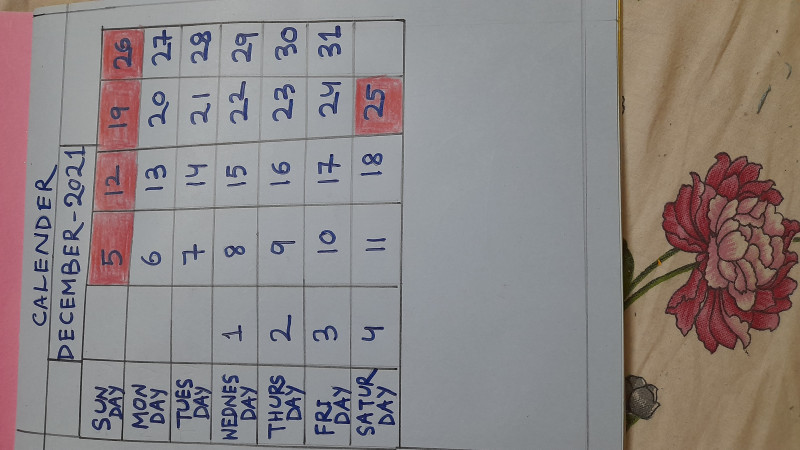 CALENDER
DECEMBER-2021
SUNDAY 5 12 19 26
MONDAY 6 13 20 27
TUESDAY 7 14 21 28
WEDNESDAY 1 8 15 22 29
THURSDAY 2 9 16 23 30
FRIDAY 3 10 17 24 31
SATURDAY 4 11 18 25